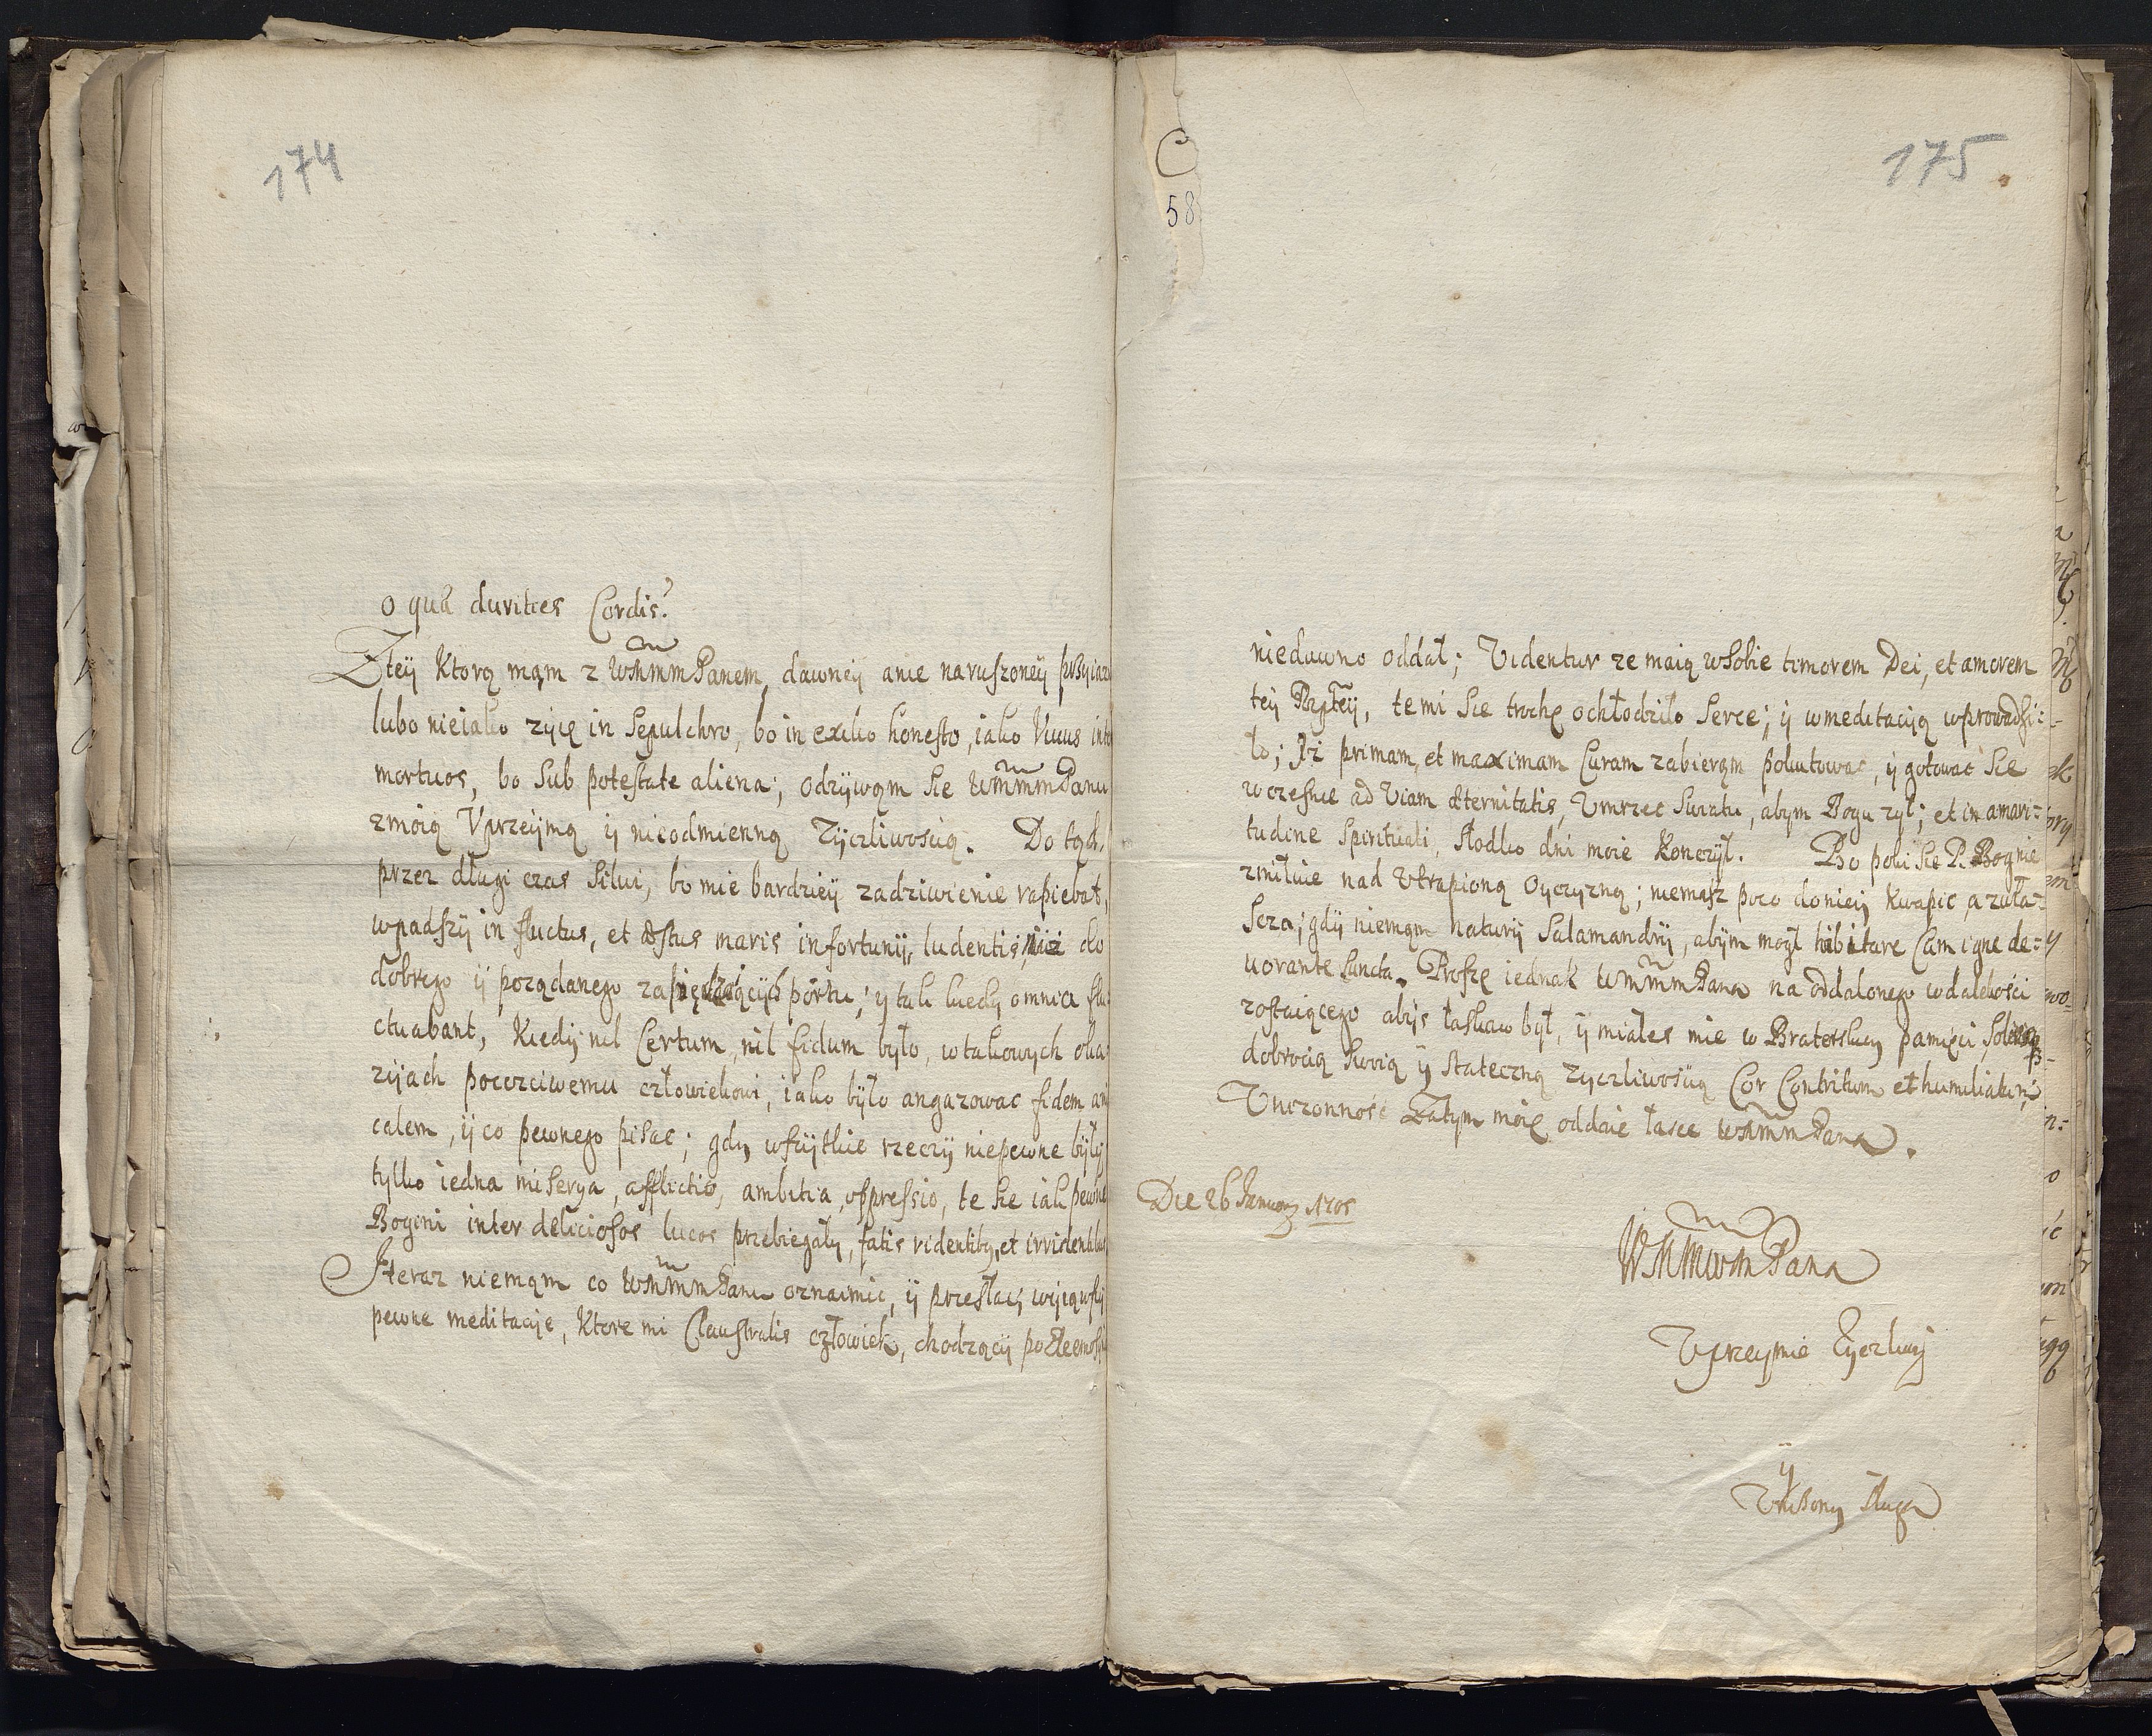 174
o quã durities Cordis?
Zteÿ Ktorą mąm z WMMM Panem, dawney anie naruszoneÿ
lubo nieiako zÿię in Sepulchro, bo in exilio honesto, iako Viuus
mortuos, bo Sub potestate aliena; odzÿwąm Sie WMMM Panu
zmoią Vprzeÿmą ÿ nieodmienną Zÿczliwoscią. Do tąd
przez długi czas Silui, bo mie bardzieÿ zadziwienie rapiebat,
wpadszÿ in fluctus, et æstus maris infortunÿ, ludentis, do
dobrego ÿ poządanego portu; ÿ tak kiedy omnia flu
ctuabant, Kiedÿ nil Certum, nil fidum było, w takowych oka
zÿjach poczciwemu człowiekowi, iako bÿło angazowac fidem
calem, ÿ co pewnego pisac; gdy wszÿtkie rzeczÿ niepewne bÿłÿ
tylko iedna miserya, afflictio, ambitia, oppressio, te sie iak pewne
Bogini inter deliciosos lucos przebiegały, fatis ridentibus, et irridentibus
Iteraz niemąm co WMMM Panu oznaimic, ÿ przesłac, wÿiąwszÿ
pewne meditacÿe, Ktore mi Claustralis człowiek, chodzącÿ
C
58
175
niedawno oddał; Videntur ze maią wsobie timorem Dei, et amorem
teÿ Rzptey, temi Sie trochę ochłodziło Serce; ÿ wmeditacÿą wprowadzi:
ło; Iż primam, et maximam Curam zabierąm pokutowac, ÿ gotowac Sie
wczesnie ad Viam æternitatis, Vmrzec Swiatu, abym Bogu zył; et in amari:
tudine Spirituali, słodko dni moie Konczÿł. Bo poki Sie P. Bog nie
zmiłuie nad Vtrapioną Oyczyzną; niemasz poco do nieÿ kwapic, a zwła:
scza; gdÿ niemąm naturÿ Salamandrÿ, abÿm mogł habitare Cum igne de:
uorante Suncta. Proszę iednak WMMM Pana na oddalonego wdalekości
zostaiącego abÿs łaskaw był, ÿ miałes mie w Braterskieÿ pamięci,
dobrocią Swoią ÿ Stateczną zyczliwoscią Cor Contritum et humiliatum;
Vniżonność Zatym moię oddaie łasce WMMM Pana.
Die 26 Januarÿ 1705
WMMMM Pana
Vprzeymie Zyczliwy
ÿ
Vniżony Sługa